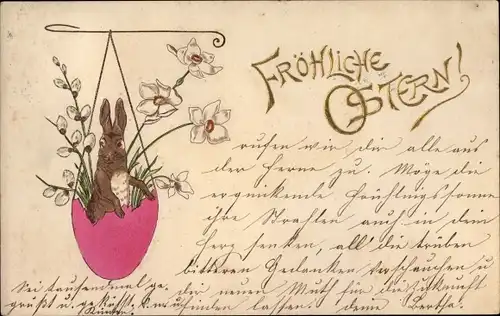 FRÖHLICHE
OSTERN!
rufen wir dir alle aus
der Ferne zu. Möge die
erquikende Frühlingssonne
ihre Strahlen auch in dein
Herz senken, all die trüben
bitteren Gedanken verscheuchen u.
dir neuen Muth für die Zukunft
finden lassen. deine Bertha.
Sei tausendmal ge-
grüßt u. geküßt